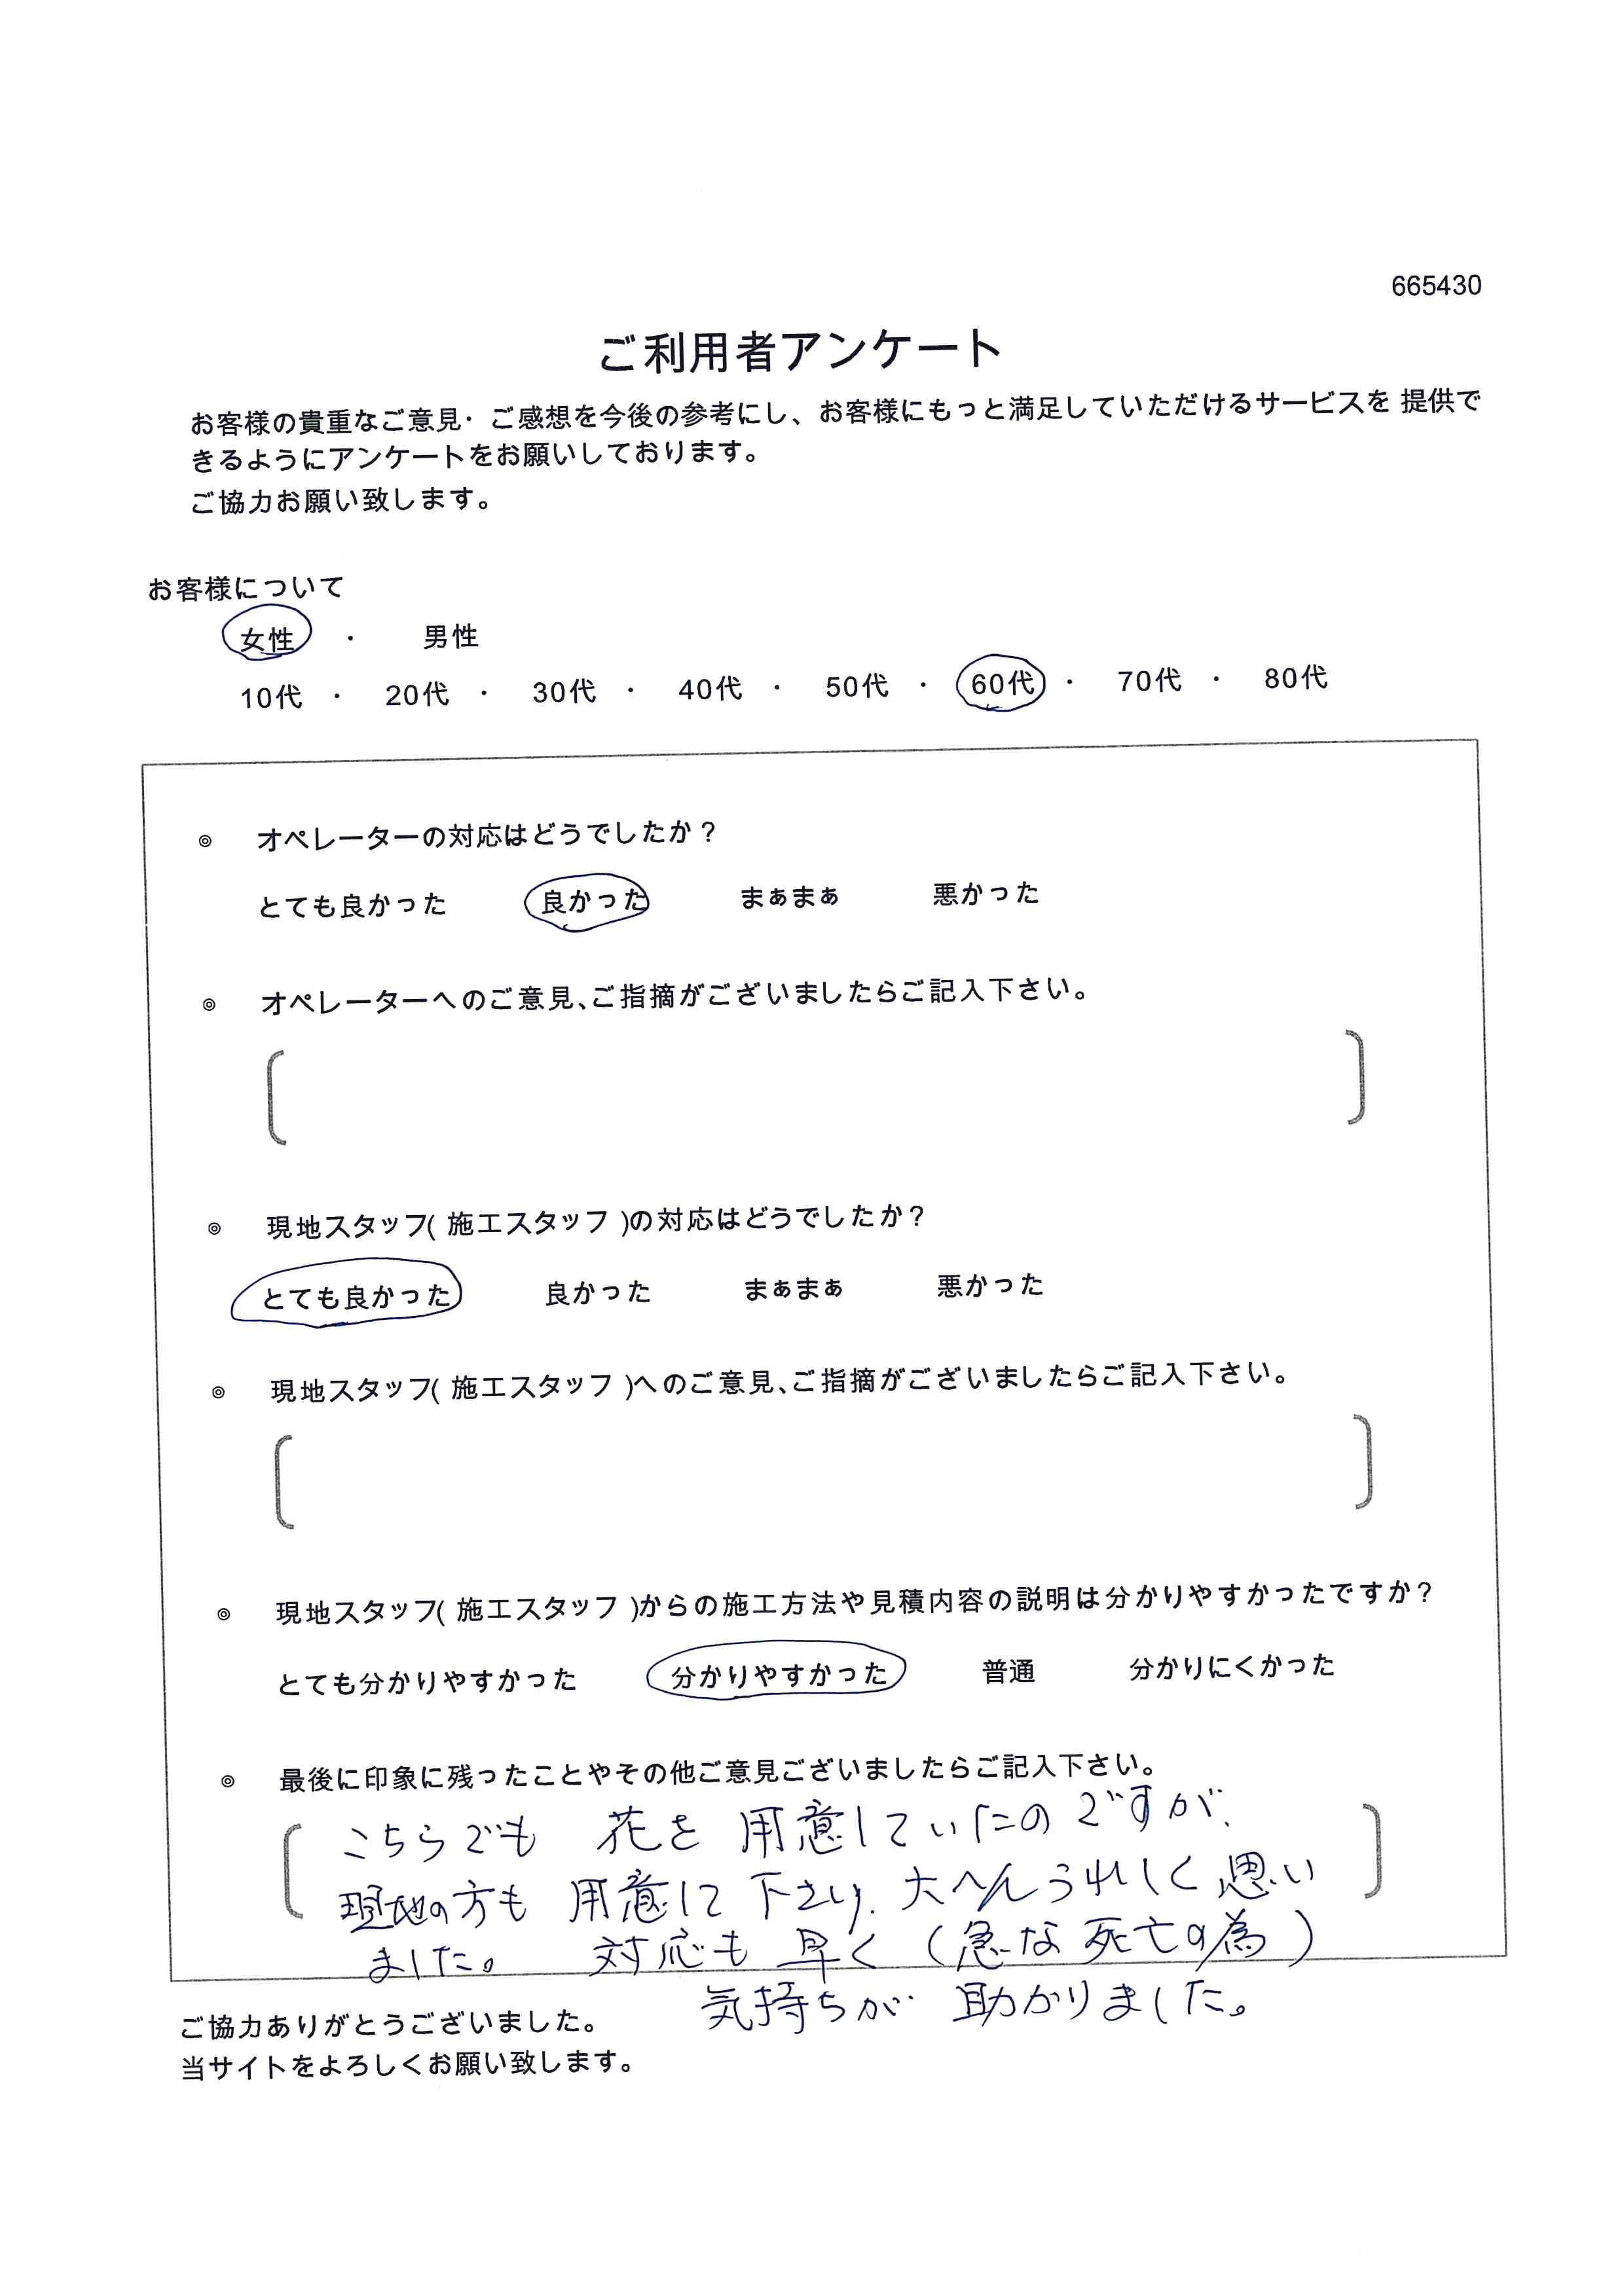 665430
ご利用者アンケート
お客様の貴重なご意見・ご感想を今後の参考にし、お客様にもっと満足していただけるサービスを 提供で
きるようにアンケートをお願いしております。
ご協力お願い致します。
お客様について
女性 ・ 男性
10代 ・ 20代 ・ 30代 ・ 40代 ・ 50代 ・ 60代 ・ 70代 ・ 80代
◎ オペレーターの対応はどうでしたか？
とても良かった 良かった まぁまぁ 悪かった
◎ オペレーターへのご意見、ご指摘がございましたらご記入下さい。
◎ 現地スタッフ( 施工スタッフ )の対応はどうでしたか？
とても良かった 良かった まぁまぁ 悪かった
◎ 現地スタッフ( 施工スタッフ )へのご意見、ご指摘がございましたらご記入下さい。
◎ 現地スタッフ( 施工スタッフ )からの施工方法や見積内容の説明は分かりやすかったですか？
とても分かりやすかった 分かりやすかった 普通 分かりにくかった
◎ 最後に印象に残ったことやその他ご意見ございましたらご記入下さい。
こちらでも 花を 用意していたのですが、
現地の方も 用意して下さり、大へんうれしく思い
ました。 対応も 早く（急な死亡の為）
気持ちが 助かりました。
ご協力ありがとうございました。
当サイトをよろしくお願い致します。